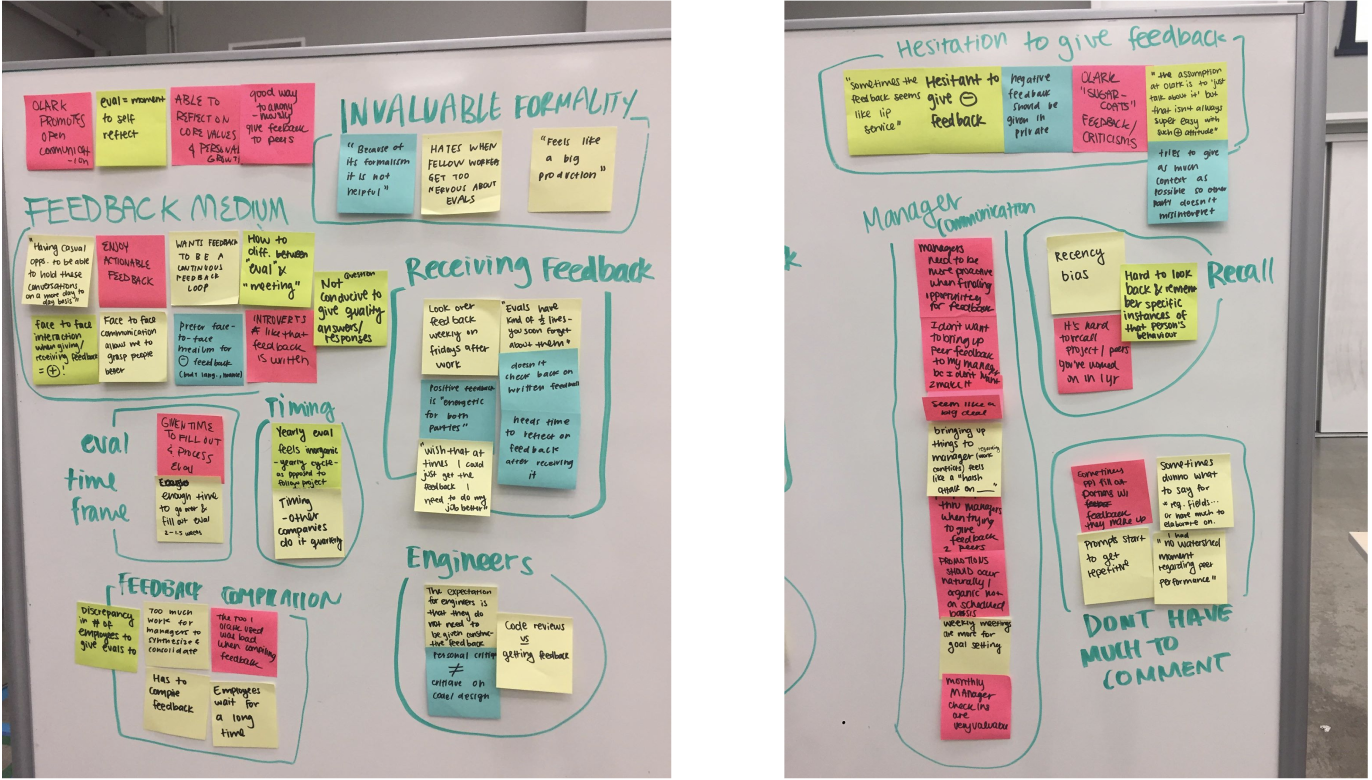 OLARK
PROMOTES
OPEN
COMMUNICAT
-ION
eval = moment
to self
reflect
ABLE TO
REFLECT ON
CORE VALUES
& PERSONAL
GROWTH
good way
to anony
-mously
give feedback
to peers
INVALUABLE FORMALITY
"Because of
its formalism
it is not
helpful"
HATES WHEN
FELLOW WORKERS
GET TOO
NERVOUS ABOUT
EVALS
"Feels like
a big
production"
FEEDBACK MEDIUM
"Having casual
opps. to be able
to hold these
conversations
on a more day to
day basis"
ENJOY
ACTIONABLE
FEEDBACK
WANTS FEEDBACK
TO BE A
CONTINUOUS
FEEDBACK
LOOP
How to
diff. between
"eval" &
"meeting"
Question
Not
conducive to
give quality
answers/
responses
face to face
interaction
when giving/
receiving feedback
= +!
Face to face
communication
allow me to
grasp people
better
Prefer face-
to-face
medium for
- feedback
INTROVERTS
like that
feedback
is written
Receiving Feedback
Look over
feedback
weekly on
fridays after
work
"Evals have
kind of ½ lives-
you soon forget
about them"
Positive feedback
is "energetic
for both
parties"
doesn't
check back on
written feedback
needs time
to reflect on
feedback
after receiving
it
"wish that at
times I could
just get the
feedback I
need to do my
job better"
eval
time
frame
GIVEN TIME
TO FILL OUT
& PROCESS
EVAL
enough time
to go over &
fill out eval
2-1.5 weeks
Timing
Yearly eval
feels inorganic
-yearly cycle-
as opposed to
follow project
Timing
-other
companies
do it quarterly
FEEDBACK COMPILATION
Discrepancy
in # of
employees to
give evals to
TOO much
work for
managers to
synthesize &
consolidate
The tool
Olark used
was bad
when compiling
feedback
Has to
compile
feedback
Employees
wait for
a long
time
Engineers
The expectation
for engineers is
that they do
not need to
be given construc-
tive feedback
Personal critique
≠
critique on
code/design
Code reviews
vs
getting feedback
Hesitation to give feedback
"sometimes the
feedback seems
like lip
service"
Hesitant to
give -
feedback
negative
feedback
should be
given in
private
OLARK
"SUGAR-
COATS"
FEEDBACK/
CRITICISMS
"the assumption
at olark is to 'just
talk about it' but
that isn't always
super easy with
such + attitude"
tries to give
as much
context as
possible so other
party doesn't
misinterpret
Manager
communication
managers
need to be
more proactive
when finding
opportunities
for feedback
I don't want
to bring up
peer feedback
to my manager
bc I don't want
2 make it
seem like a
big deal
bringing up
things to
manager regarding
(work
conflicts) feels
like a "harsh
attack on ___"
thru managers
when trying to
give
feedback
2 peers
PROMOTIONS
should occur
naturally/
organic not
on scheduled
basis
weekly meetings
are more for
goal setting
monthly
Manager
check ins
are
very valuable
Recall
Recency
bias
Hard to look
back & remem
ber specific
instances of
that person's
behaviour
It's hard
to recall
project/peers
you've worked
on in 1yr
Sometimes
ppl fill out
portions w/
feedback
they make up
Sometimes
dunno what
to say for
reg. fields...
or have much to
elaborate on.
Prompts start
to get
repetitive
I had
"no watershed
moment
regarding peer
performance"
DONT HAVE
MUCH TO
COMMENT